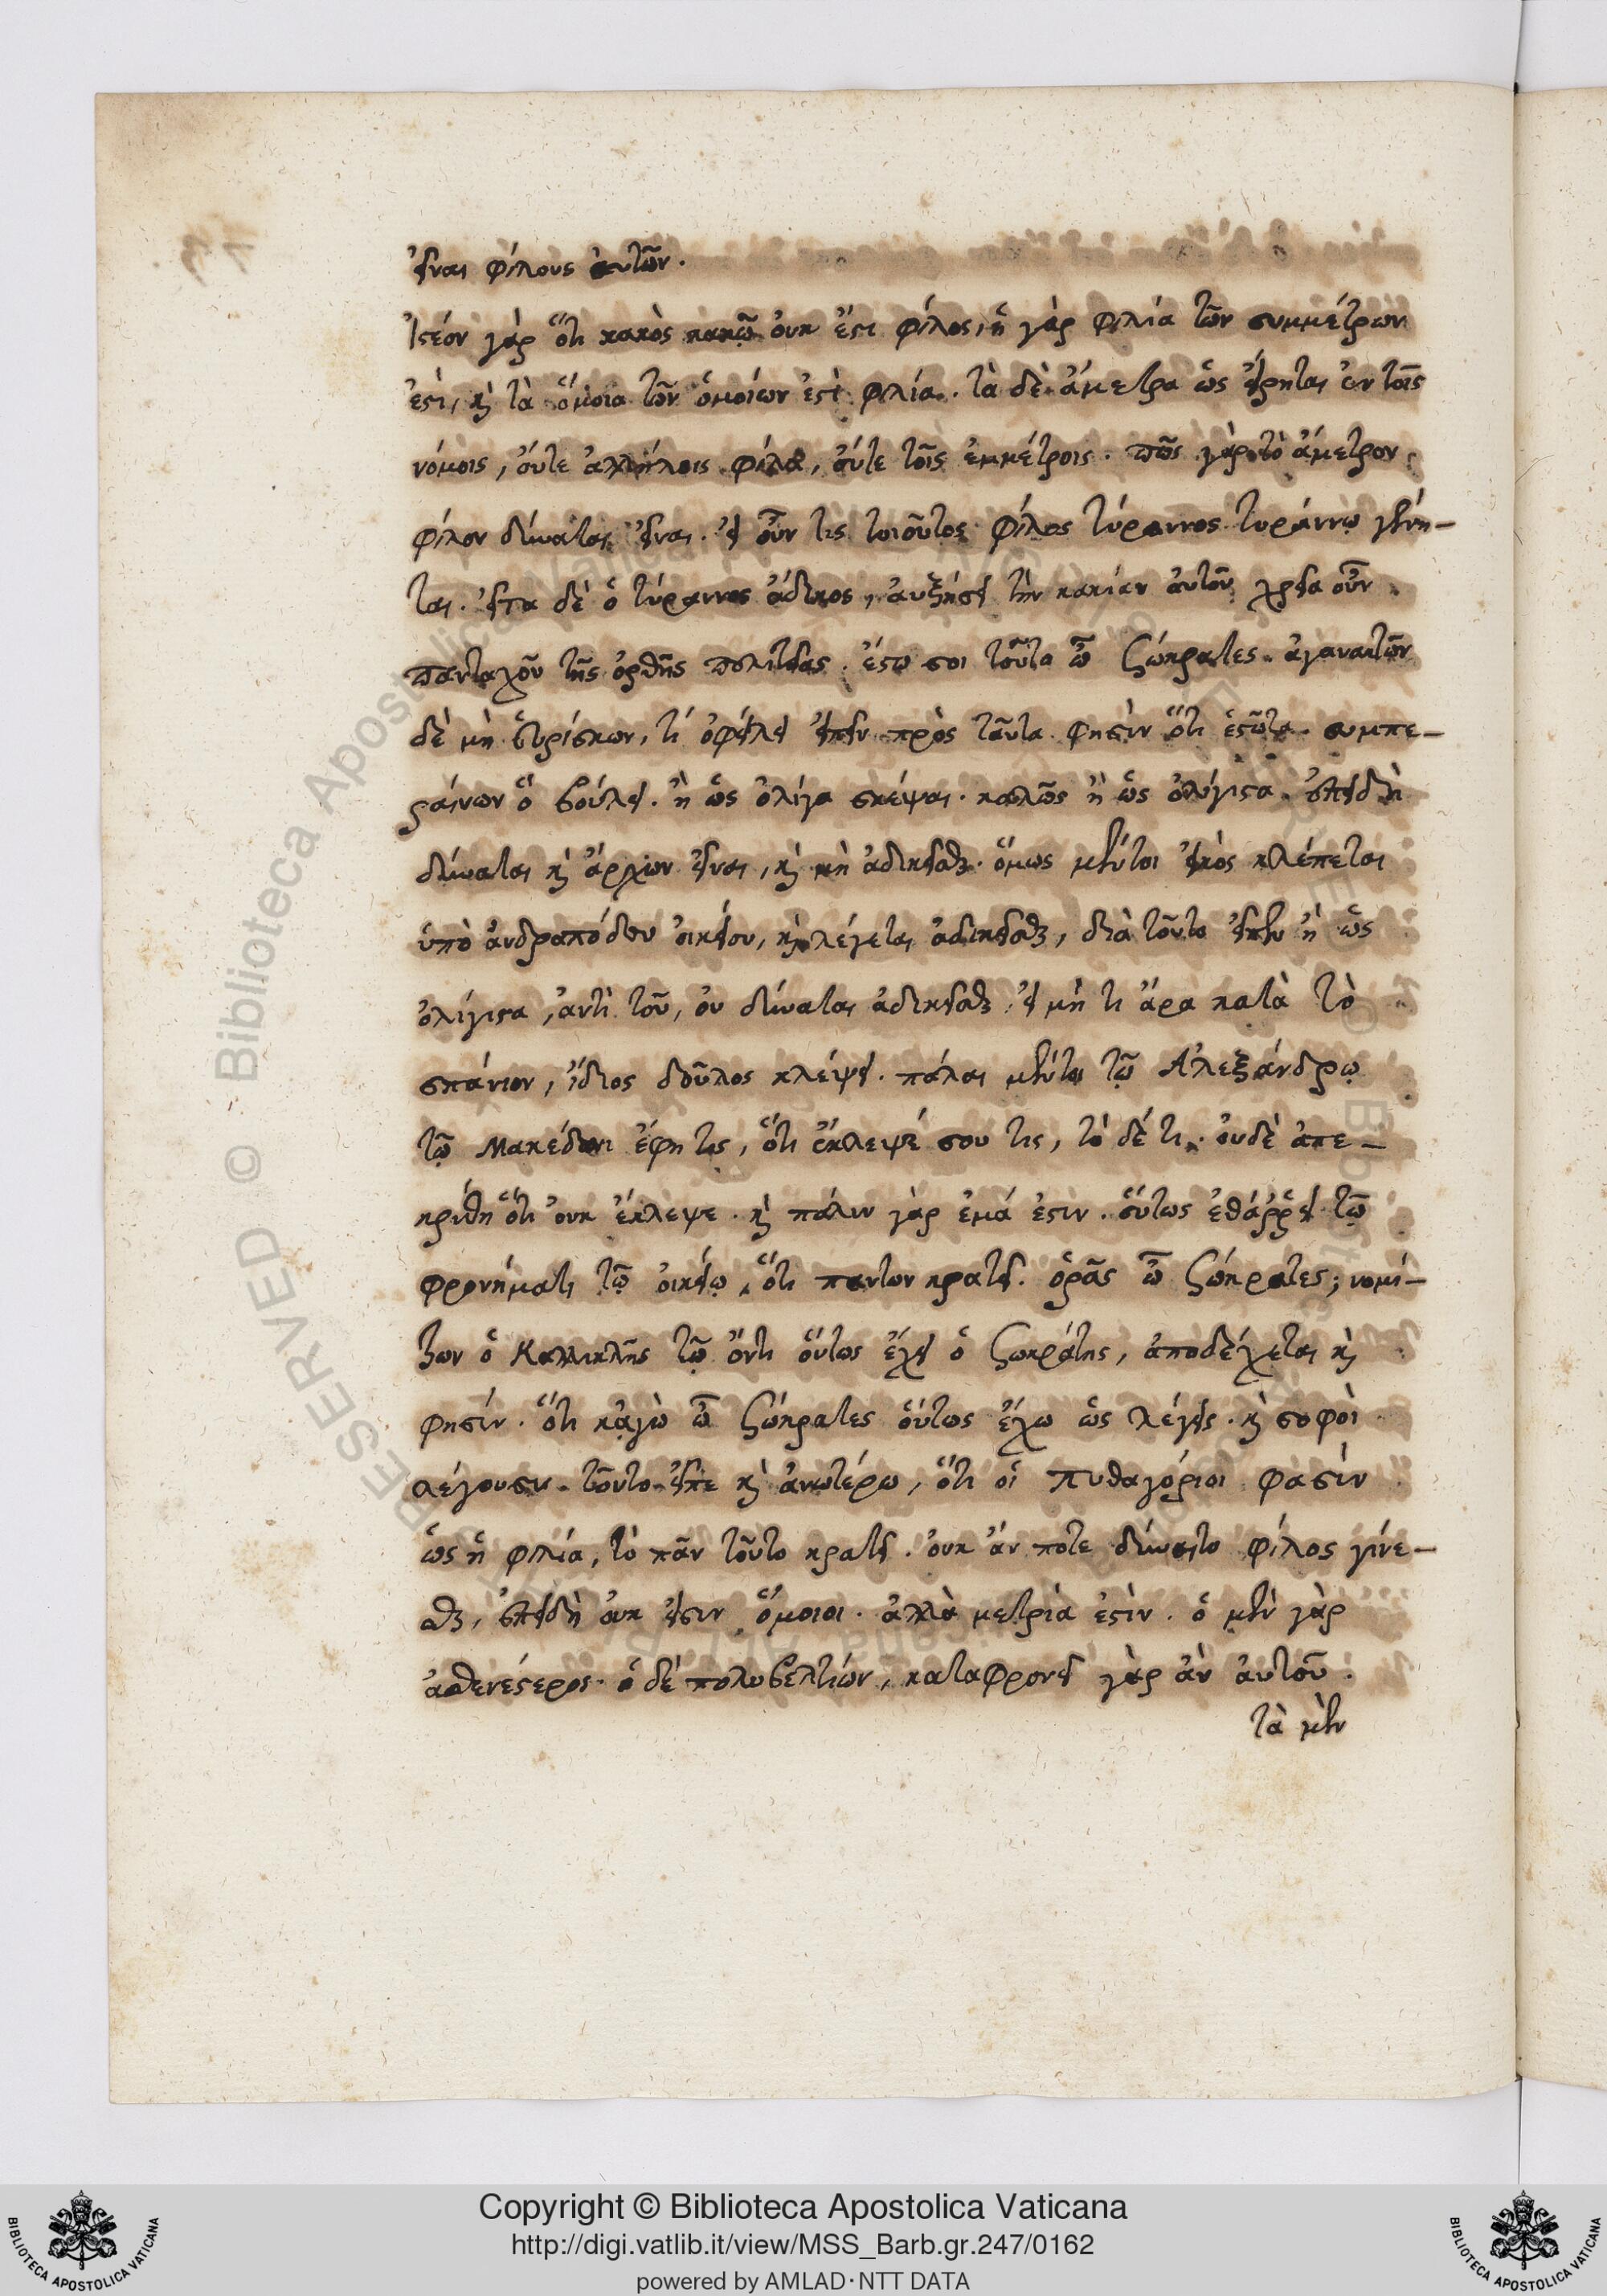 εἶναι φίλους αὐτῶν.
Ἰστέον γὰρ ὅτι κακὸς κακῷ οὐκ ἔστι φίλος, ἡ γὰρ φιλία τῶν συμμέτρων
ἐστι, κὶ τὰ ὅμοια τῶν ὁμοίων ἐστὶ φιλία. τὰ δὲ ἄμετρα ὡς εἴρηται ἐν τοῖς
νόμοις, οὔτε ἀλλήλοις φίλα, οὔτε τοῖς ἐμμέτροις. πῶς γὰρ τὸ ἄμετρον
φίλον δύναται εἶναι. εἰ οὖν τις τοιοῦτος φίλος τύραννος τυράννῳ γένη-
ται. εἶτα δὲ ὁ τύραννος ἄδικος, αὐξήσει τὴν κακίαν αὐτοῦ χρεία οὖν
πανταχοῦ τῆς ὀρθῆς πολιτείας. ἔστω σοι τοῦτο ὦ Σώκρατες. ἀγανακτῶν
δὲ μὴ εὑρίσκων, τί ὀφείλει εἰπεῖν πρὸς ταῦτα φησὶν ὅτι ἐστῶτα. συμπε-
ραίνων ὃ βούλει. ἢ ὡς ὀλίγα σκέψαι. καλῶς ἢ ὡς ὀλίγιστα. ἐπειδὴ
δύναται κὶ ἄρχων εἶναι, κὶ μὴ ἀδικεῖσθαι. ὅμως μέντοι εἰκὸς κλέπεται
ὑπὸ ἀνδραπόδου οἰκείου, κὶ λέγεται ἀδικεῖσθαι, διὰ τοῦτο εἶπεν ἢ ὡς
ὀλίγιστα, ἀντὶ τοῦ, οὐ δύναται ἀδικεῖσθαι εἰ μή τι ἄρα κατὰ τὸ
σπάνιον, ἴδιος δοῦλος κλέψει. πάλαι μέντοι τῷ Ἀλεξάνδρῳ
τῷ Μακεδόνι ἔφη τις, ὅτι ἔκλεψέ σου τις, τὸ δέ τι. οὐδὲ ἀπε-
κρίθη ὅτι οὐκ ἔκλεψε. κὶ πάλιν γὰρ ἐμά ἐστιν. οὕτως ἐθάῤῥει τῷ
φρονήματι τῷ οἰκείῳ, ὅτι παντων κρατεῖ. ὁρᾷς ὦ Σώκρατες; νομί-
ζων ὁ Καλλικλῆς τῷ ὄντι οὕτως ἔχει ὁ Σωκράτης, ἀποδέχεται κὶ
φησίν. ὅτι κἀγὼ ὦ Σώκρατες οὕτως ἔχω ὡς λέγεις. κὶ σοφοὶ
λέγουσιν. τοῦτο εἶπε κὶ ἀνωτέρω, ὅτι οἱ Πυθαγόριοι φασὶν
ὡς ἡ φιλία, τὸ πᾶν τοῦτο κρατεῖ. οὐκ ἄν ποτε δύναιτο φίλος γίνε-
σθαι, ἐπειδὴ οὐκ εἰσιν ὅμοιοι. ἀλλὰ μετρία ἐστίν. ὁ μὲν γὰρ
ἀσθενέστερος. ὁ δὲ πολυβελτίων, καταφρονεῖ γὰρ ἂν αὐτοῦ.
τὰ μὲν
RESERVED © Biblioteca Apostolica Vaticana
Copyright © Biblioteca Apostolica Vaticana
http://digi.vatlib.it/view/MSS_Barb.gr.247/0162
powered by AMLAD·NTT DATA
BIBLIOTECA APOSTOLICA VATICANA
BIBLIOTECA APOSTOLICA VATICANA